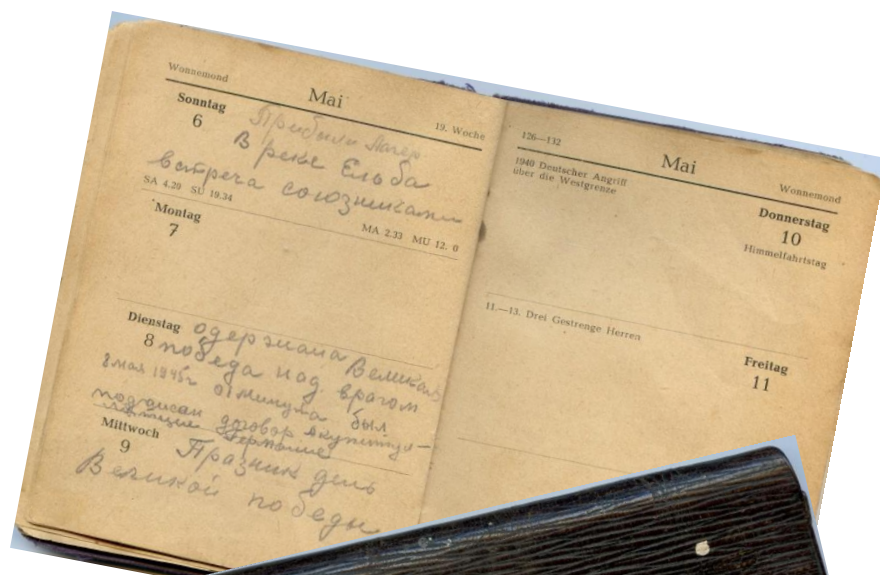 Wonnemond
Mai
19. Woche
Sonntag
6
Прибыли Лагер
В реке Ельба
встреча союзниками
SA 4.20 SU 19.34
Montag
7
MA 2.33 MU 12. 0
Dienstag
8
одержана Великая
победа над врагом
8 мая 1945г
был
подписан договор
Германие
Mittwoch
9
Празник день
Великой победы
126—132
Mai
Wonnemond
1940 Deutscher Angriff
über die Westgrenze
Donnerstag
10
Himmelfahrtstag
11.—13. Drei Gestrenge Herren
Freitag
11